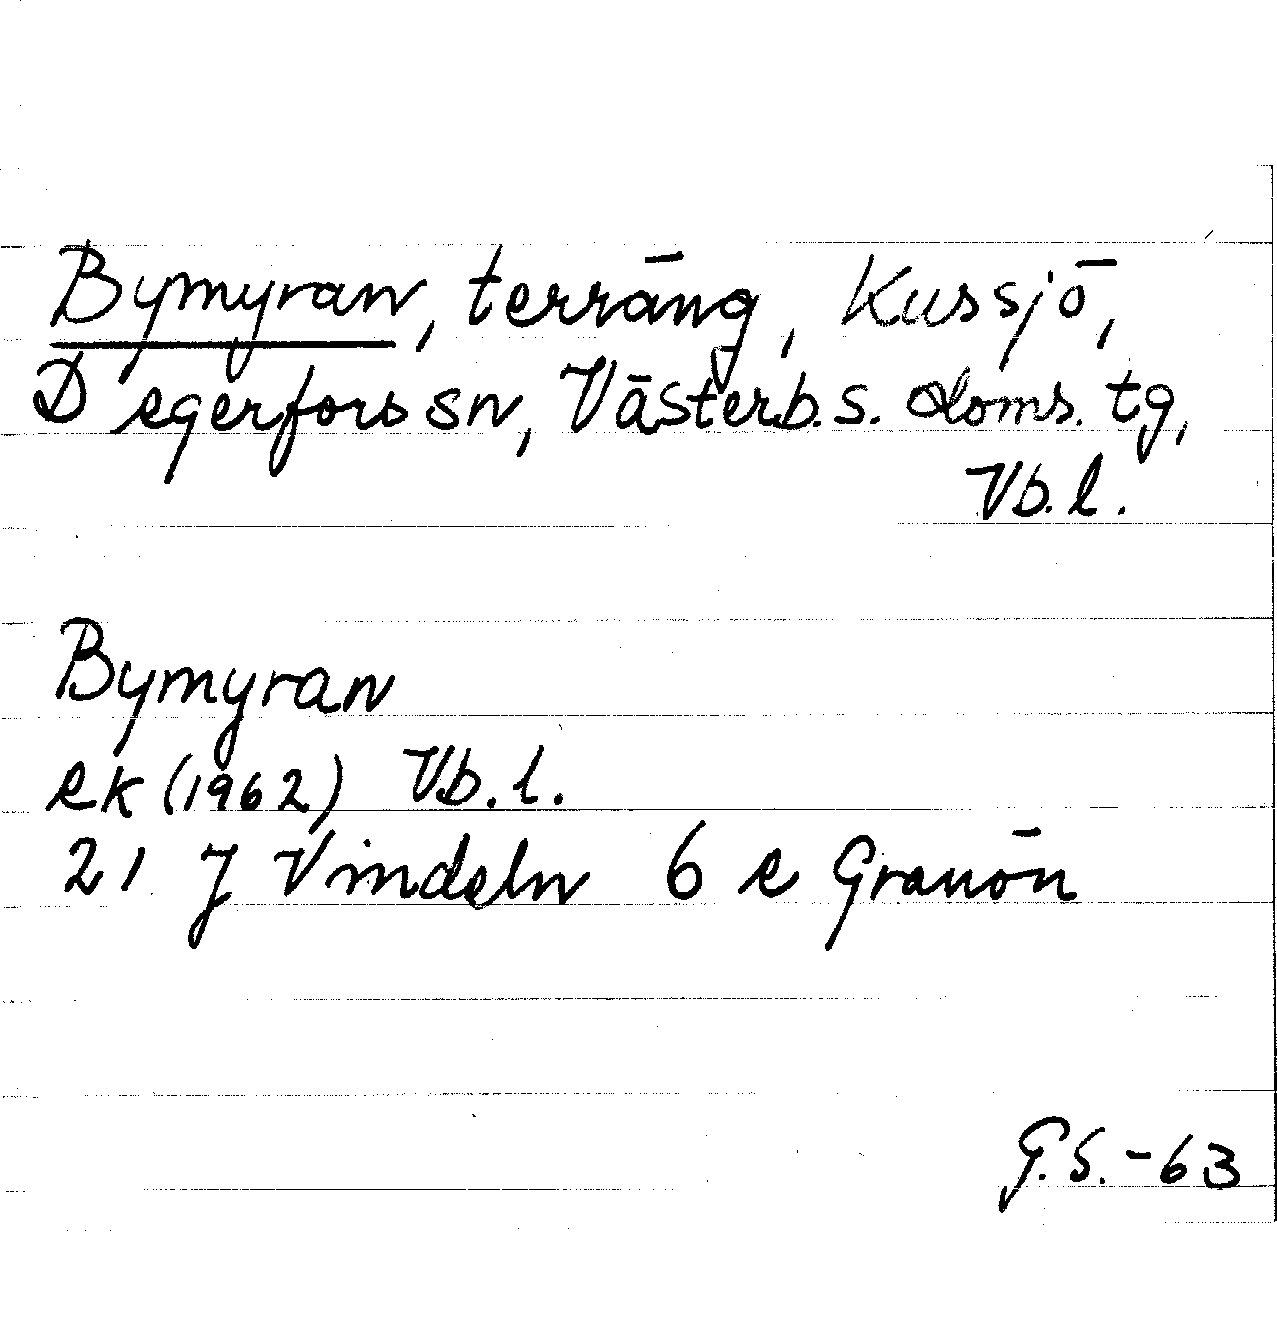 Bymyran, terräng, Kussjö,
Degerfors sn, Västerb. s. doms. tg,
Vb. l.
Bymyran
ek (1962) Vb. l.
21 J Vindeln 6 e Granön
G.S. -63